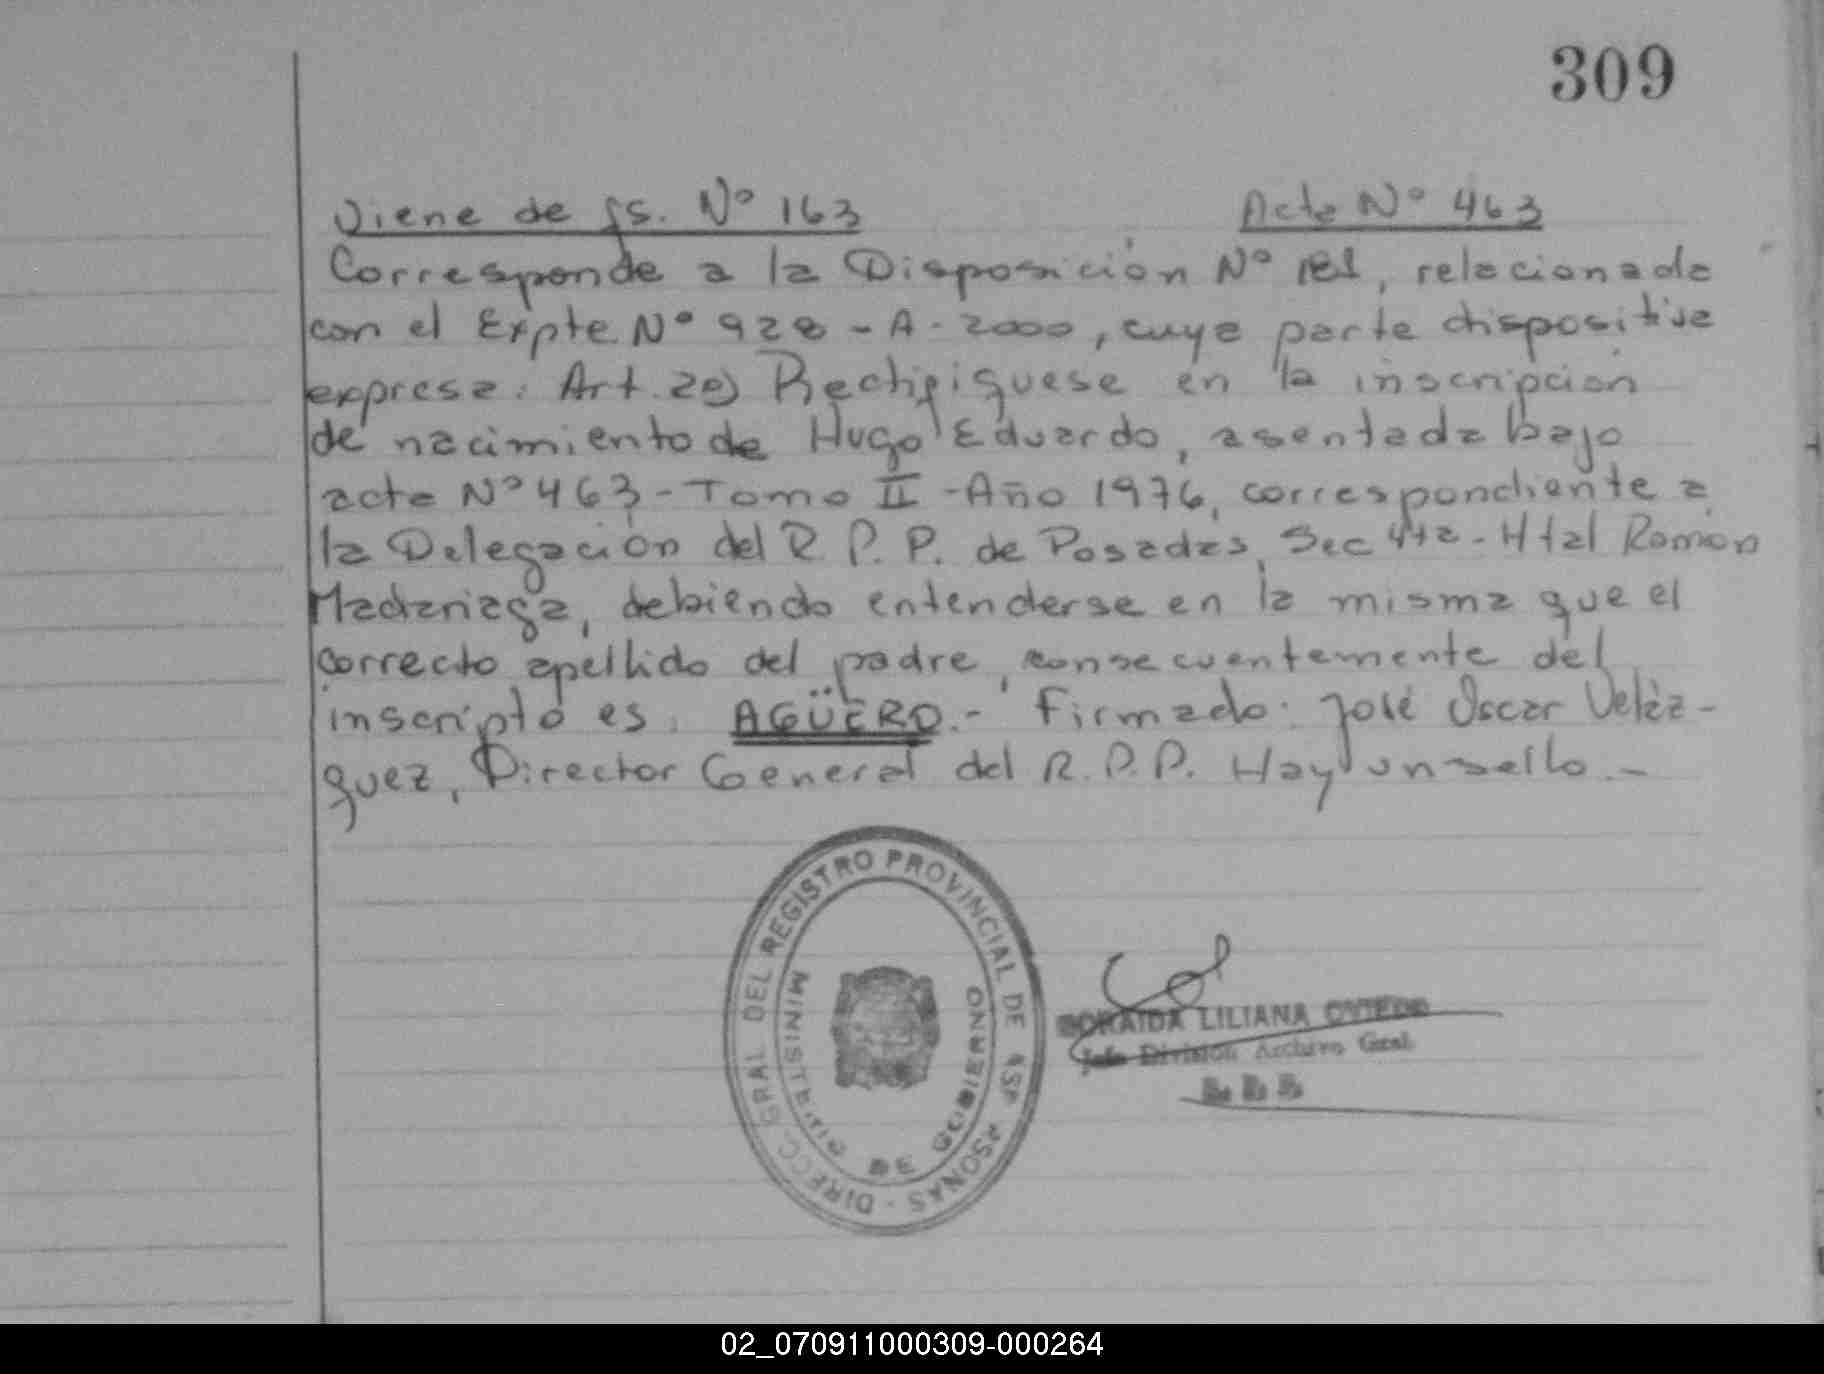 309
Viene de fs. Nº 163 Acta Nº 463
Corresponde a la Disposición Nº 181, relacionada
con el Expte Nº 928 - A - 2000, cuya parte dispositiva
expresa: Art. 2º) Rectifíquese en la inscripción
de nacimiento de Hugo Eduardo, asentada bajo
acta Nº 463 - Tomo II - Año 1976, correspondiente a
la Delegación del R. P. P. de Posadas, Sec 4ta - Htal Ramón
Madariaga, debiendo entenderse en la misma que el
correcto apellido del padre, consecuentemente del
inscripto es: AGÜERO.- Firmado: José Oscar Veláz-
quez, Director General del R. P. P. Hay un sello.-
DIRECC. GRAL DEL REGISTRO PROVINCIAL DE PERSONAS -
MINISTERIO DE GOBIERNO
SORAIDA LILIANA OVIEDO
Jefe División Archivo Gral.
02_070911000309-000264